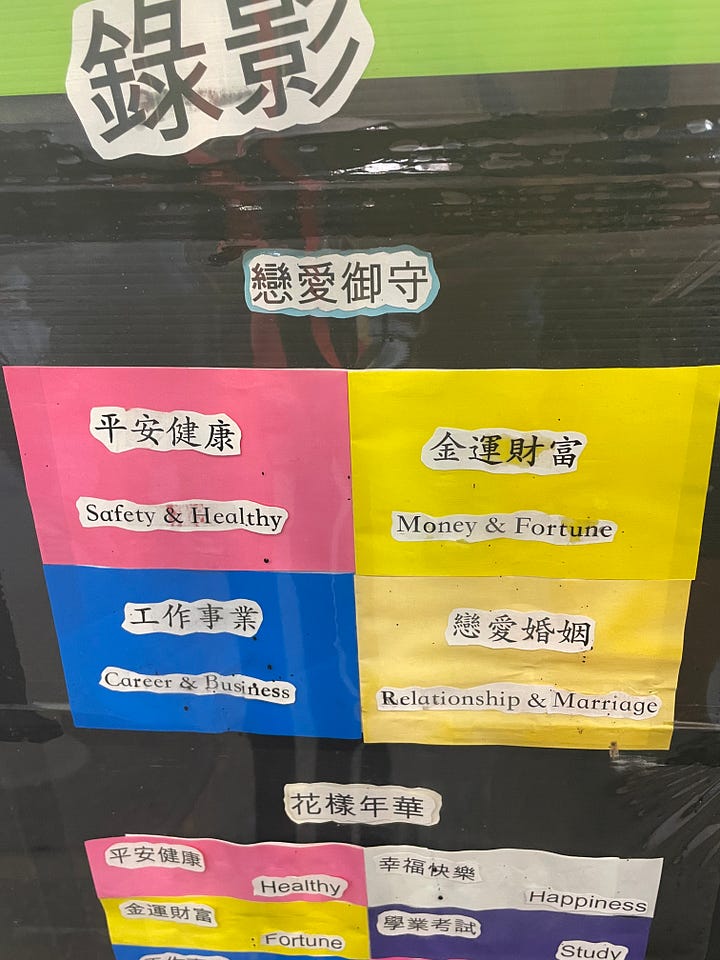 錄影
戀愛御守
平安健康
Safety & Healthy
金運財富
Money & Fortune
工作事業
Career & Business
戀愛婚姻
Relationship & Marriage
花樣年華
平安健康
Healthy
幸福快樂
Happiness
金運財富
Fortune
學業考試
Study